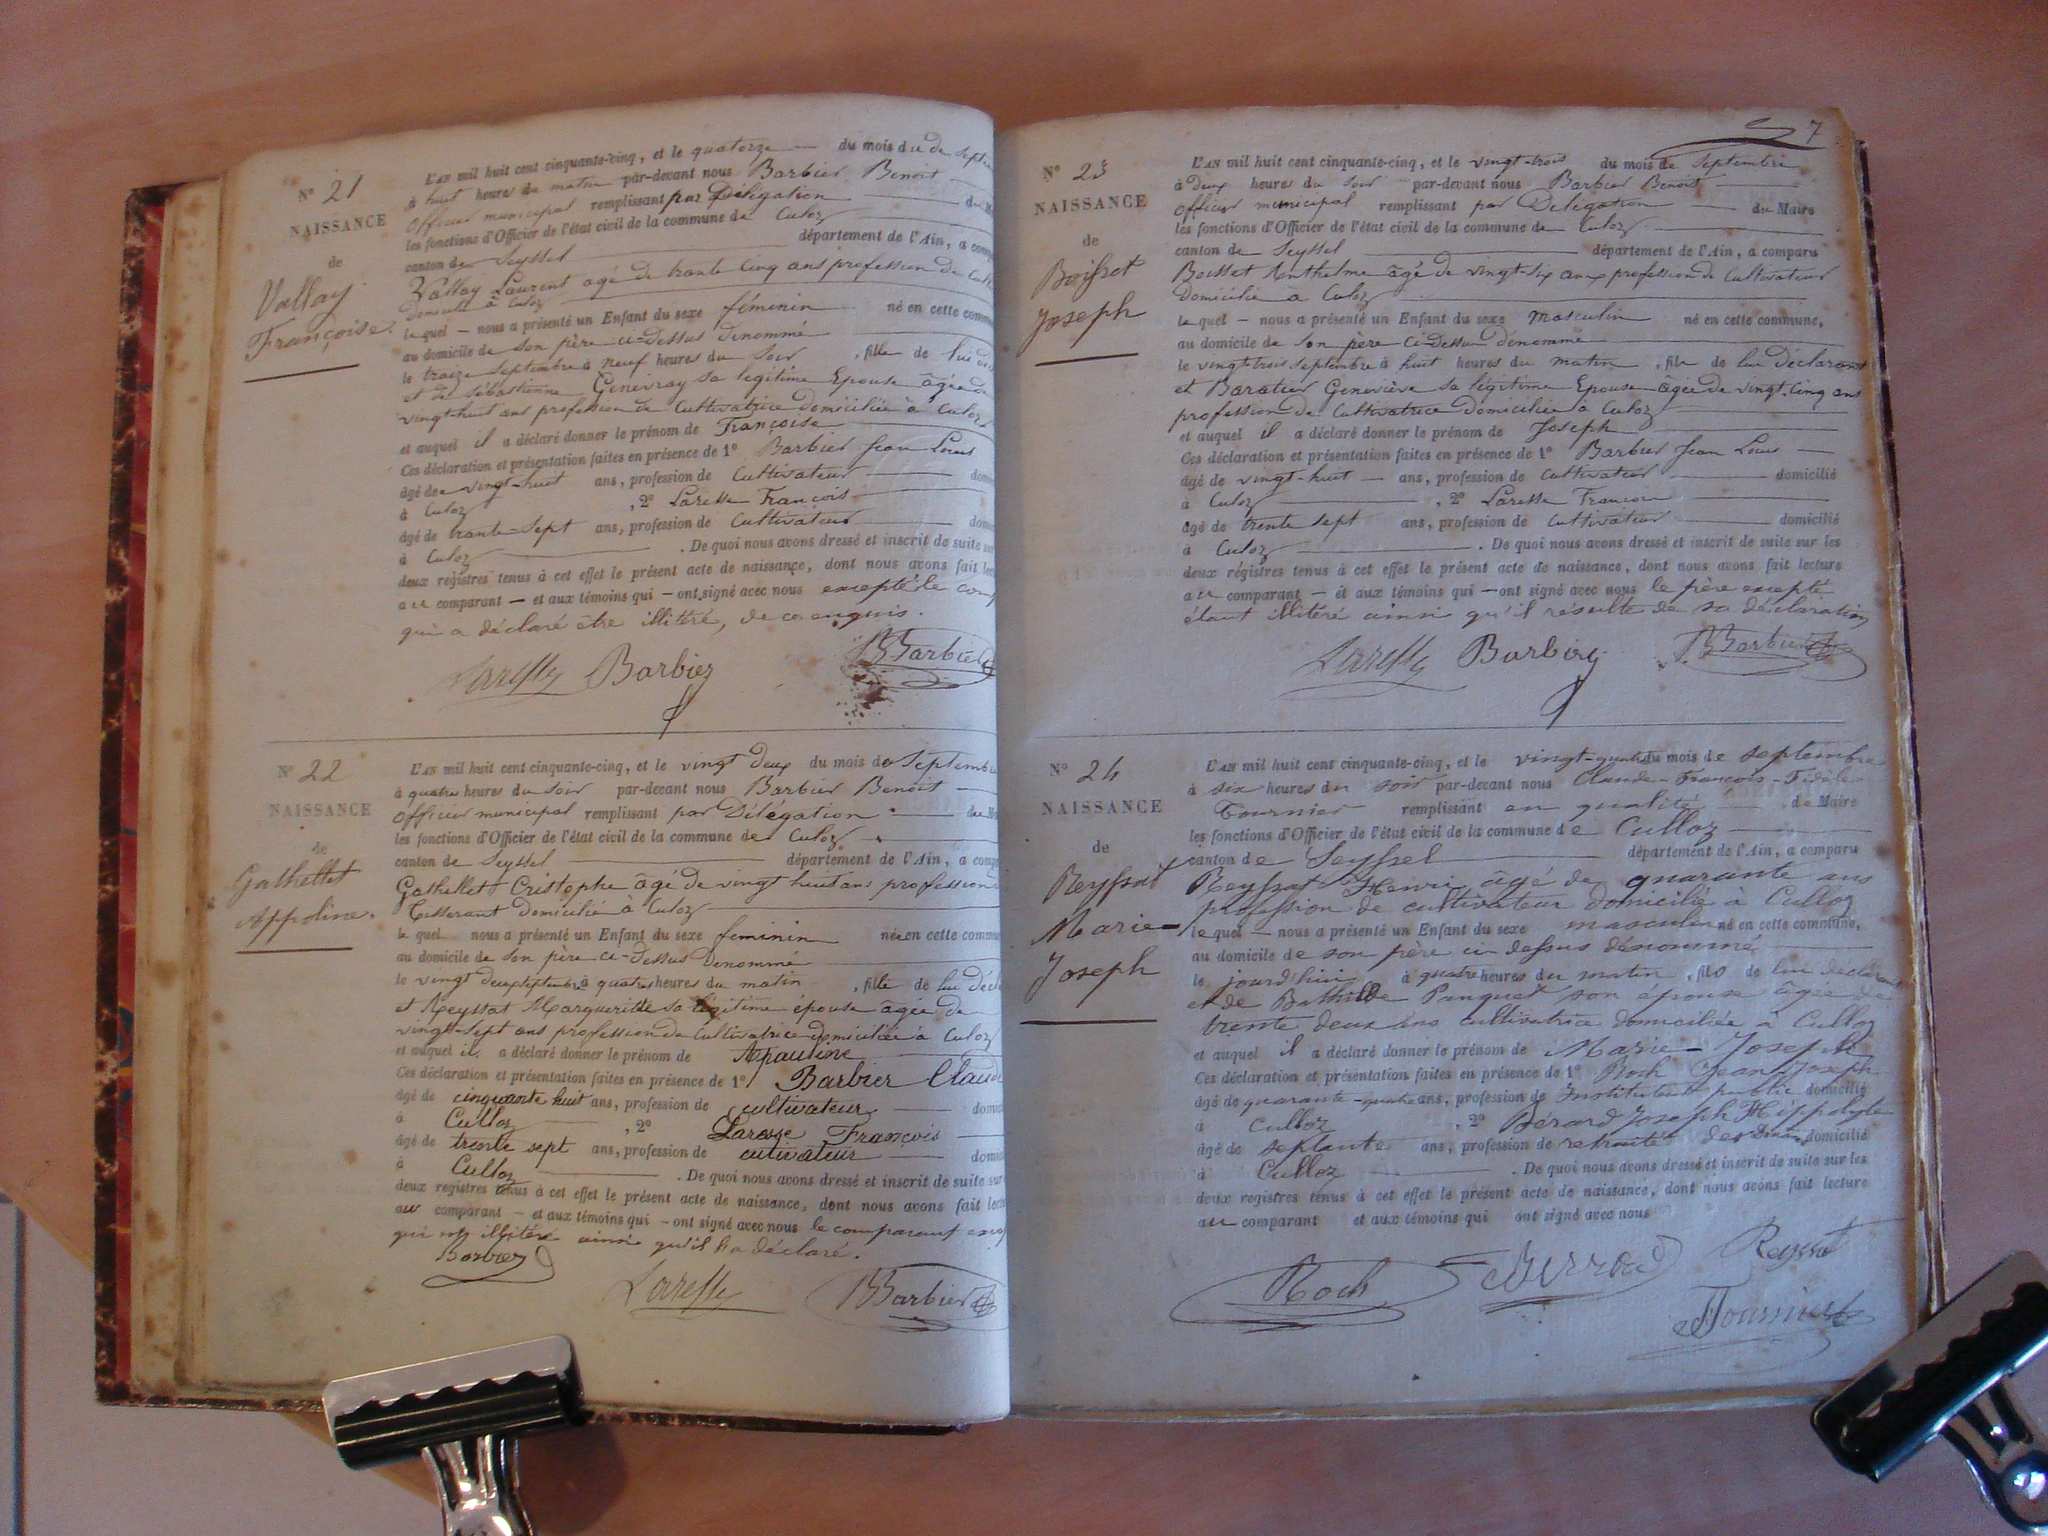 N° 21
NAISSANCE
de
Vallay
Françoise.
L'AN mil huit cent cinquante-cinq, et le quatorze — du mois de
à huit heures du matin par-devant nous Barbier Benoit
officier municipal remplissant par Délégation du
les fonctions d'Officier de l'état civil de la commune de Culoz
canton de Seyssel département de l'Ain, a
Vallay Laurent agé de trante cinq ans profession de
domicilié à Culoz
le quel — nous a présenté un Enfant du sexe féminin né en cette
au domicile de son père ci-Dessus dénommé
le treize septembre à neuf heures du soir , fille de lui
et de Sébastienne Genevray sa legitime Epouse âgée de
vingt-huit ans profession de Cultivatrice domiciliée à Culoz
et auquel il a déclaré donner le prénom de Françoise
Ces déclaration et présentation faites en présence de 1° Barbier Jean Louis
âgé de vingt-huit ans, profession de Cultivateur
à Culoz , 2° Laresse François
âgé de trante-sept ans, profession de Cultivateur
à Culoz . De quoi nous avons dressé et inscrit de suite sur
deux registres tenus à cet effet le présent acte de naissance, dont nous avons fait
au comparant — et aux témoins qui — ont signé avec nous excepté le
qui a déclaré être illitéré, de ce enquis.
Laresse Barbier BBarbier
N° 22
NAISSANCE
de
Gathellet
Appoline.
L'AN mil huit cent cinquante-cinq, et le vingt deux du mois de Septembre
à quatre heures du soir par-devant nous Barbier Benoit
officier municipal remplissant par Délégation du
les fonctions d'Officier de l'état civil de la commune de Culoz
canton de Seyssel département de l'Ain, a
Gathellet Cristophe âgé de vingt huit ans profession
Tisserant domicilié à Culoz
le quel nous a présenté un Enfant du sexe feminin née en cette
au domicile de son père ci-Dessus denommé
le vingt deux septembre à quatre heures du matin , fille de lui
et Reyssat Margueritte sa légitime épouse âgée de
vingt-sept ans profession de Cultivatrice domiciliée à Culoz
et auquel il a déclaré donner le prénom de Apauline
Ces déclaration et présentation faites en présence de 1° Barbier Claude
âgé de cinquante huit ans, profession de cultivateur
à Culloz , 2° Laresse François
âgé de trente sept ans, profession de cultivateur
à Culloz . De quoi nous avons dressé et inscrit de suite sur
deux registres tenus à cet effet le présent acte de naissance, dont nous avons fait
au comparant — et aux témoins qui — ont signé avec nous le comparant
qui illitéré ainsi qu'il l'a déclaré.
Barbier
Laresse BBarbier
7
N° 23
NAISSANCE
de
Boisset
Joseph
L'AN mil huit cent cinquante-cinq, et le vingt-trois du mois de Septembre
à deux heures du soir par-devant nous Barbier Benoit
officier municipal remplissant par Délégation du Maire
les fonctions d'Officier de l'état civil de la commune de Culoz
canton de Seyssel département de l'Ain, a comparu
Boisset Anthelme âgé de vingt-six ans profession de Cultivateur
domicilié à Culoz
le quel — nous a présenté un Enfant du sexe masculin né en cette commune,
au domicile de son père ci-Dessus dénommé
le vingt-trois septembre à huit heures du matin , fils de lui déclarant
et Baratier Geneviève sa légitime Epouse âgée de vingt-cinq ans
profession de Cultivatrice domiciliée à Culoz
et auquel il a déclaré donner le prénom de Joseph
Ces déclaration et présentation faites en présence de 1° Barbier Jean Louis
âgé de vingt-huit — ans, profession de Cultivateur domicilié
à Culoz , 2° Laresse François
âgé de trente sept ans, profession de Cultivateur domicilié
à Culoz . De quoi nous avons dressé et inscrit de suite sur les
deux régistres tenus à cet effet le présent acte de naissance, dont nous avons fait lecture
au comparant — et aux témoins qui — ont signé avec nous le père excepté
étant illitéré ainsi qu'il résulte de sa déclaration
Laresse Barbier BBarbier
N° 24
NAISSANCE
de
Reyssat
Marie-
Joseph
L'AN mil huit cent cinquante-cinq, et le vingt-quatre du mois de septembre
à six heures du soir par-devant nous Claude-François-Fidèle
Tournier remplissant en qualité de Maire
les fonctions d'Officier de l'état civil de la commune de Culloz
canton de Seyssel département de l'Ain, a comparu
Reyssat Henri âgé de quarante ans
profession de cultivateur domicilié à Culloz
le quel — nous a présenté un Enfant du sexe masculin né en cette commune,
au domicile de son père ci dessus dénommé
le jourd'hui à quatre heures du matin , fils de lui déclarant
et de Bathilde Panquet son épouse âgée de
trente deux ans cultivatrice domiciliée à Culloz
et auquel il a déclaré donner le prénom de Marie-Joseph
Ces déclaration et présentation faites en présence de 1° Roch Jean Joseph
âgé de quarante-quatre ans, profession de Instituteur public domicilié
à Culloz , 2° Bérard Joseph Hippolyte
âgé de septante ans, profession de retraité des domicilié
à Culloz . De quoi nous avons dressé et inscrit de suite sur les
deux registres tenus à cet effet le présent acte de naissance, dont nous avons fait lecture
au comparant et aux témoins qui ont signé avec nous
Roch Reyssat
Tournier